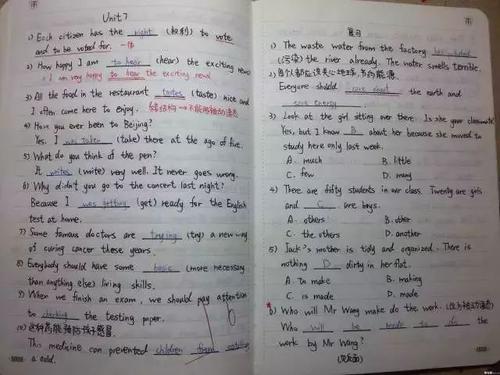 Unit 7
1) Each citizen has the right (权利) to vote
and to be voted for.
2) How happy I am to hear (hear) the exciting news!
= I am very happy to hear the exciting news
3) All the food in the restaurant tastes (taste) nice and
I often come here to enjoy.
4) Have you ever been to Beijing?
Yes. I was taken (take) there at the age of five.
5) What do you think of the pen?
It writes (write) very well. It never goes wrong.
6) Why didn't you go to the concert last night?
Because I was getting (get) ready for the English
test at home.
7) Some famous doctors are trying (try) a new way
of curing cancer these years.
8) Everybody should have some basic (more necessary
than anything else) living skills.
9) When we finish an exam, we should pay attention
to checking the testing paper.
10) 这种药能预防孩子感冒.
This medicine can prevented children from catching
a cold.
复习
1) The waste water from the factory has polluted
(污染) the river already. The water smells terrible.
2) 每个人都应该关心地球，节约能源.
Everyone should care about the earth and
save energy
3) Look at the girl sitting over there. Is she your classmate?
Yes, but I know B about her because she moved to
study here only last week.
A. much B. little
C. few D. many
4) There are fifty students in our class. Twenty are girls
and C are boys.
A. others B. other
C. the others D. another
5) Jack's mother is tidy and organized. There is
nothing D dirty in her flat.
A. to make B. making
C. is made D. made
6) Who will Mr Wang make do the work. (改为被动语态)
Who will be made to do the
work by Mr Wang?